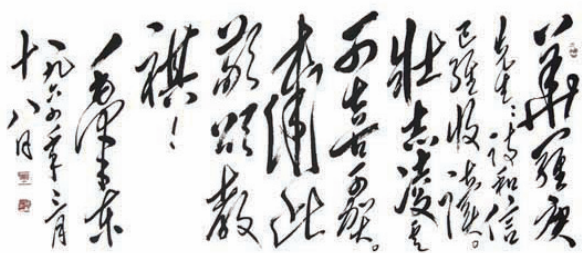 華羅庚
先生:诗和信
已經收读。
壮志凌云
可喜可賀。
此
敬颂教
祺!
毛澤东
一九六四年三月
十八日